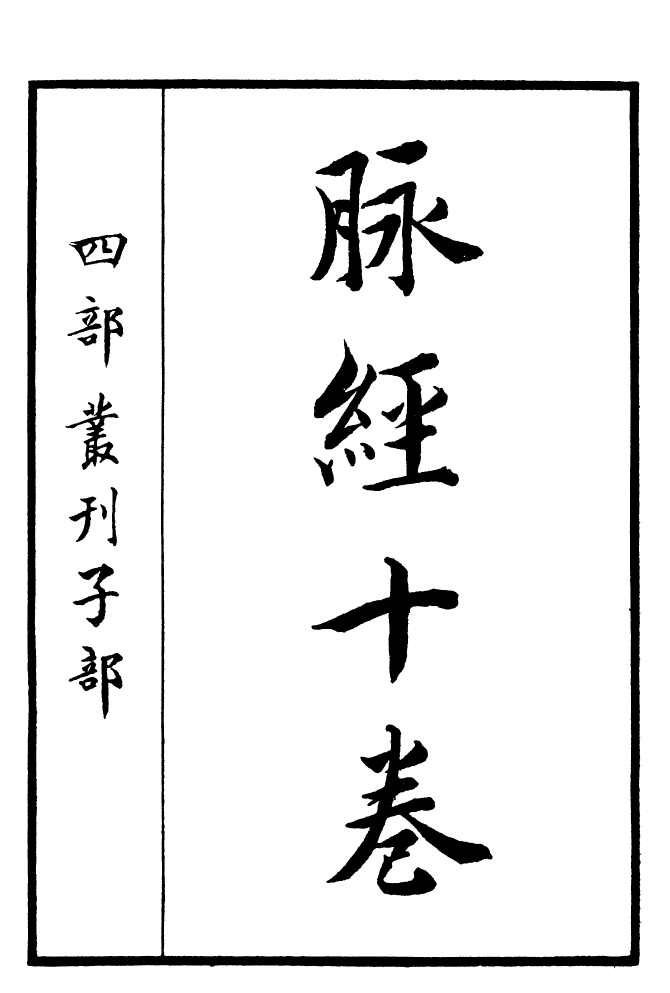 脉經十卷
四部叢刊子部